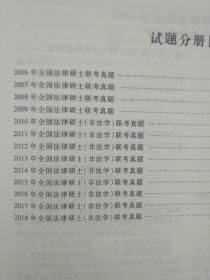 试题分册
2006 年全国法律硕士联考真题
2007 年全国法律硕士联考真题
2008 年全国法律硕士联考真题
2009 年全国法律硕士联考真题
2010 年全国法律硕士(非法学)联考真题
2011 年全国法律硕士(非法学)联考真题
2012 年全国法律硕士(非法学)联考真题
2013 年全国法律硕士(非法学)联考真题
2014 年全国法律硕士(非法学)联考真题
2015 年全国法律硕士(非法学)联考真题
2016 年全国法律硕士(非法学)联考真题
2017 年全国法律硕士(非法学)联考真题
2018 年全国法律硕士(非法学)联考真题